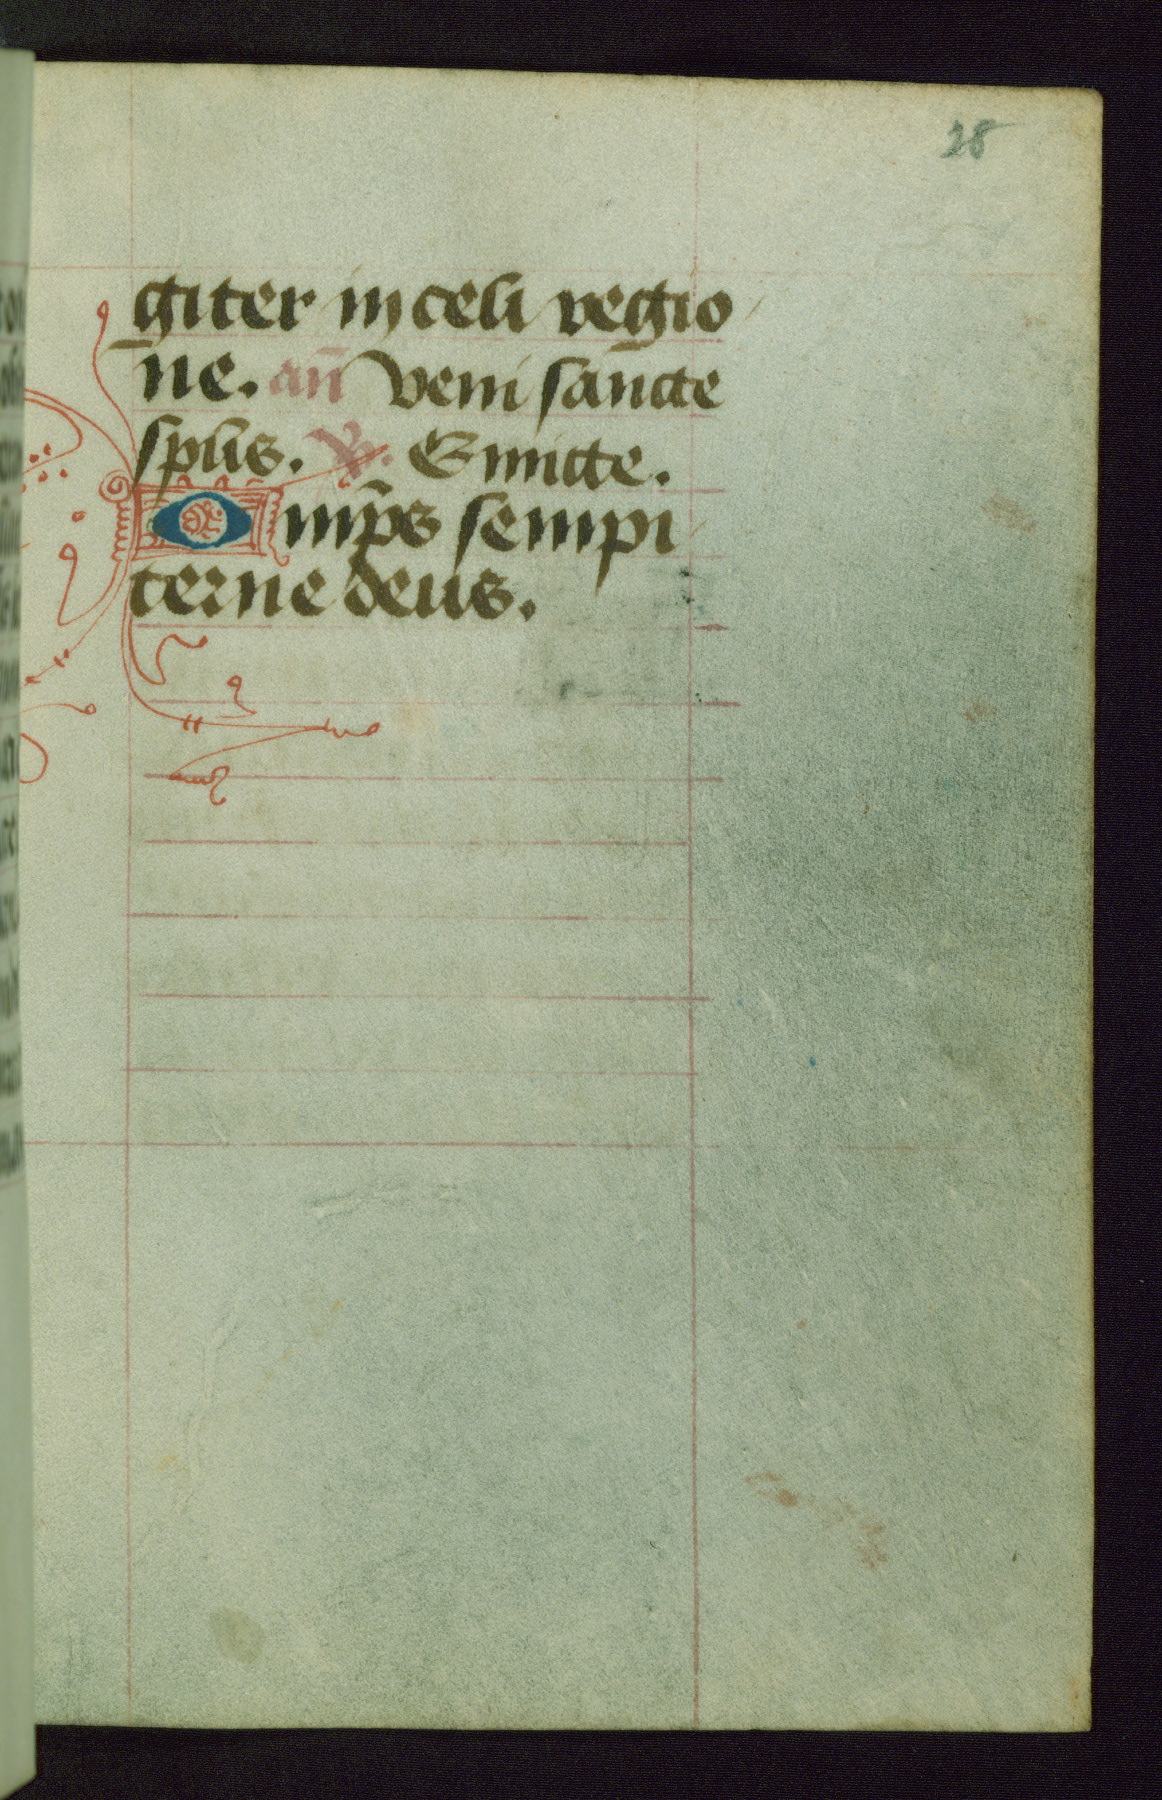 28
giter in celi regio
ne. an̄ Veni sancte
sp̄us. ℣. Emitte.
Omp̄s sempi
terne deus.